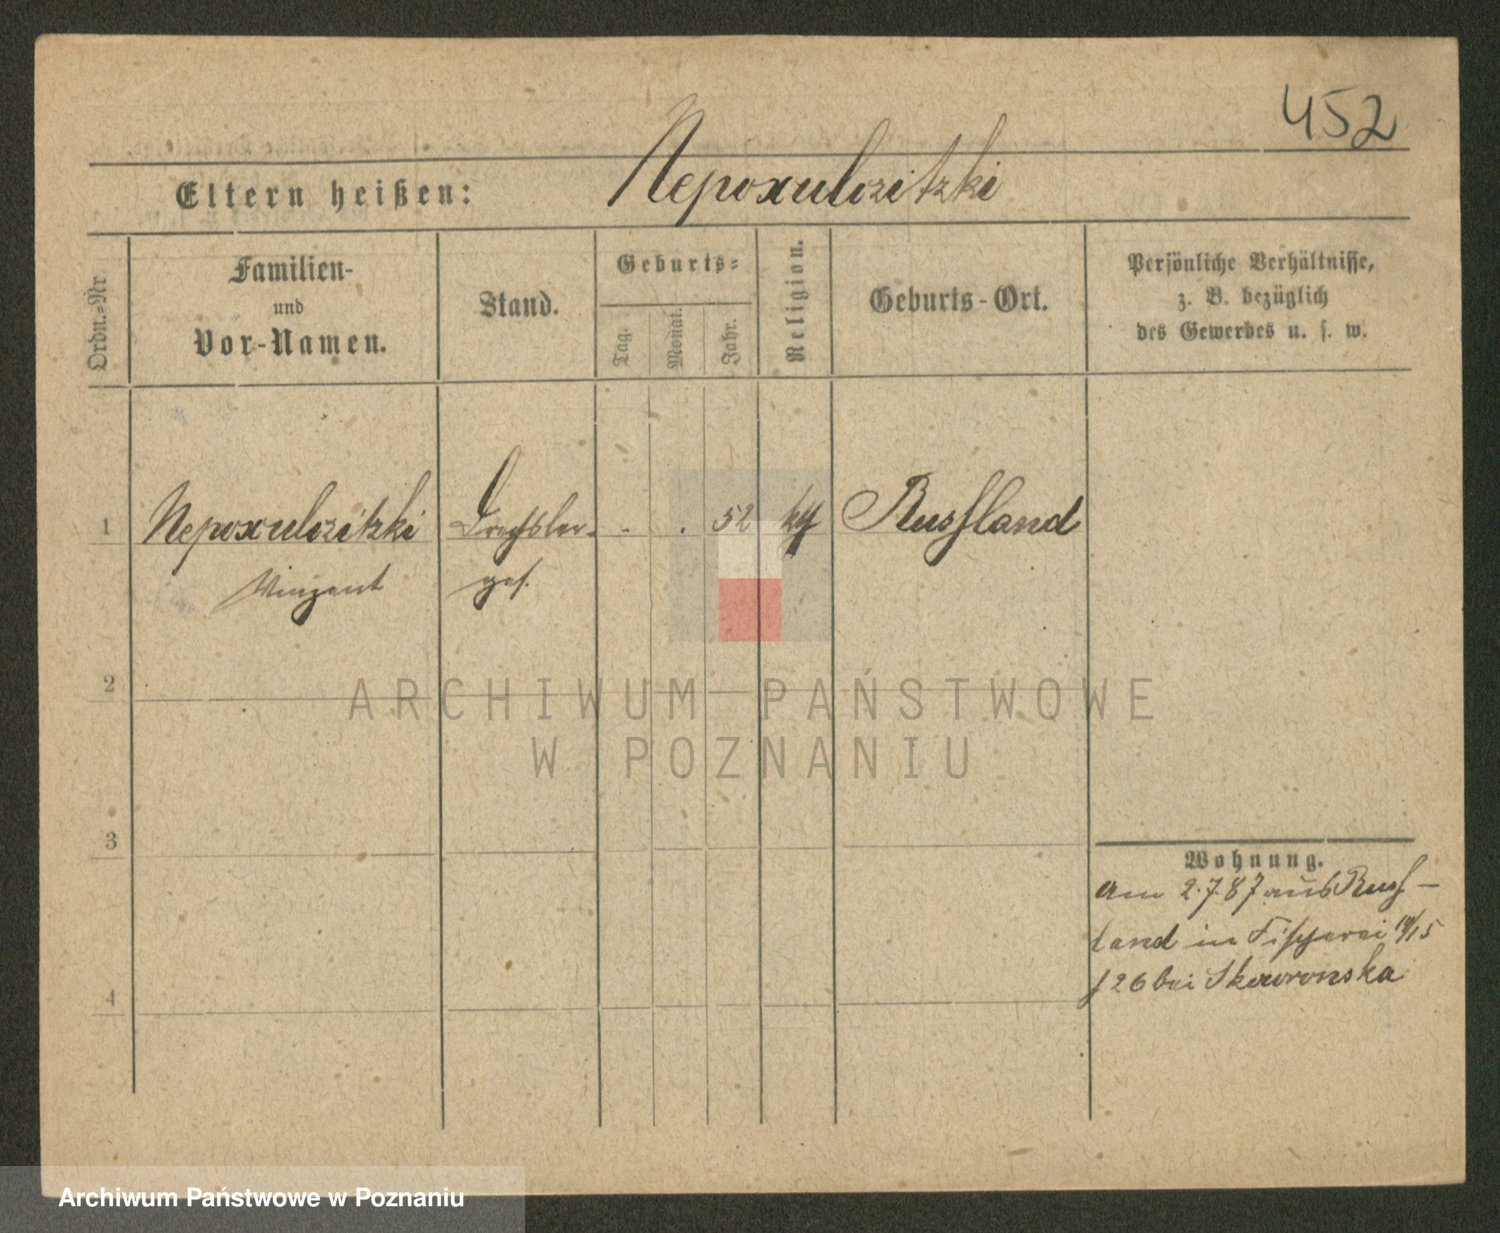 452
Eltern heißen: Nepoxulozitzki
Ordn.-Nr
Familien-
und
Vor-Namen.
Stand.
Geburts-
Tag.
Monat.
Jahr.
Religion.
Geburts-Ort.
Persönliche Verhältnisse,
z. B. bezüglich
des Gewerbes u. s. w.
1 Nepoxulozitzki Drechsler- - . 52 kth Russland
Vinzent ges.
2
3
4
Wohnung.
am 2.7.87 aus Russ-
land in Fischerei 14/15
f 26 bei Skowronska
ARCHIWUM PAŃSTWOWE
W POZNANIU
Archiwum Państwowe w Poznaniu